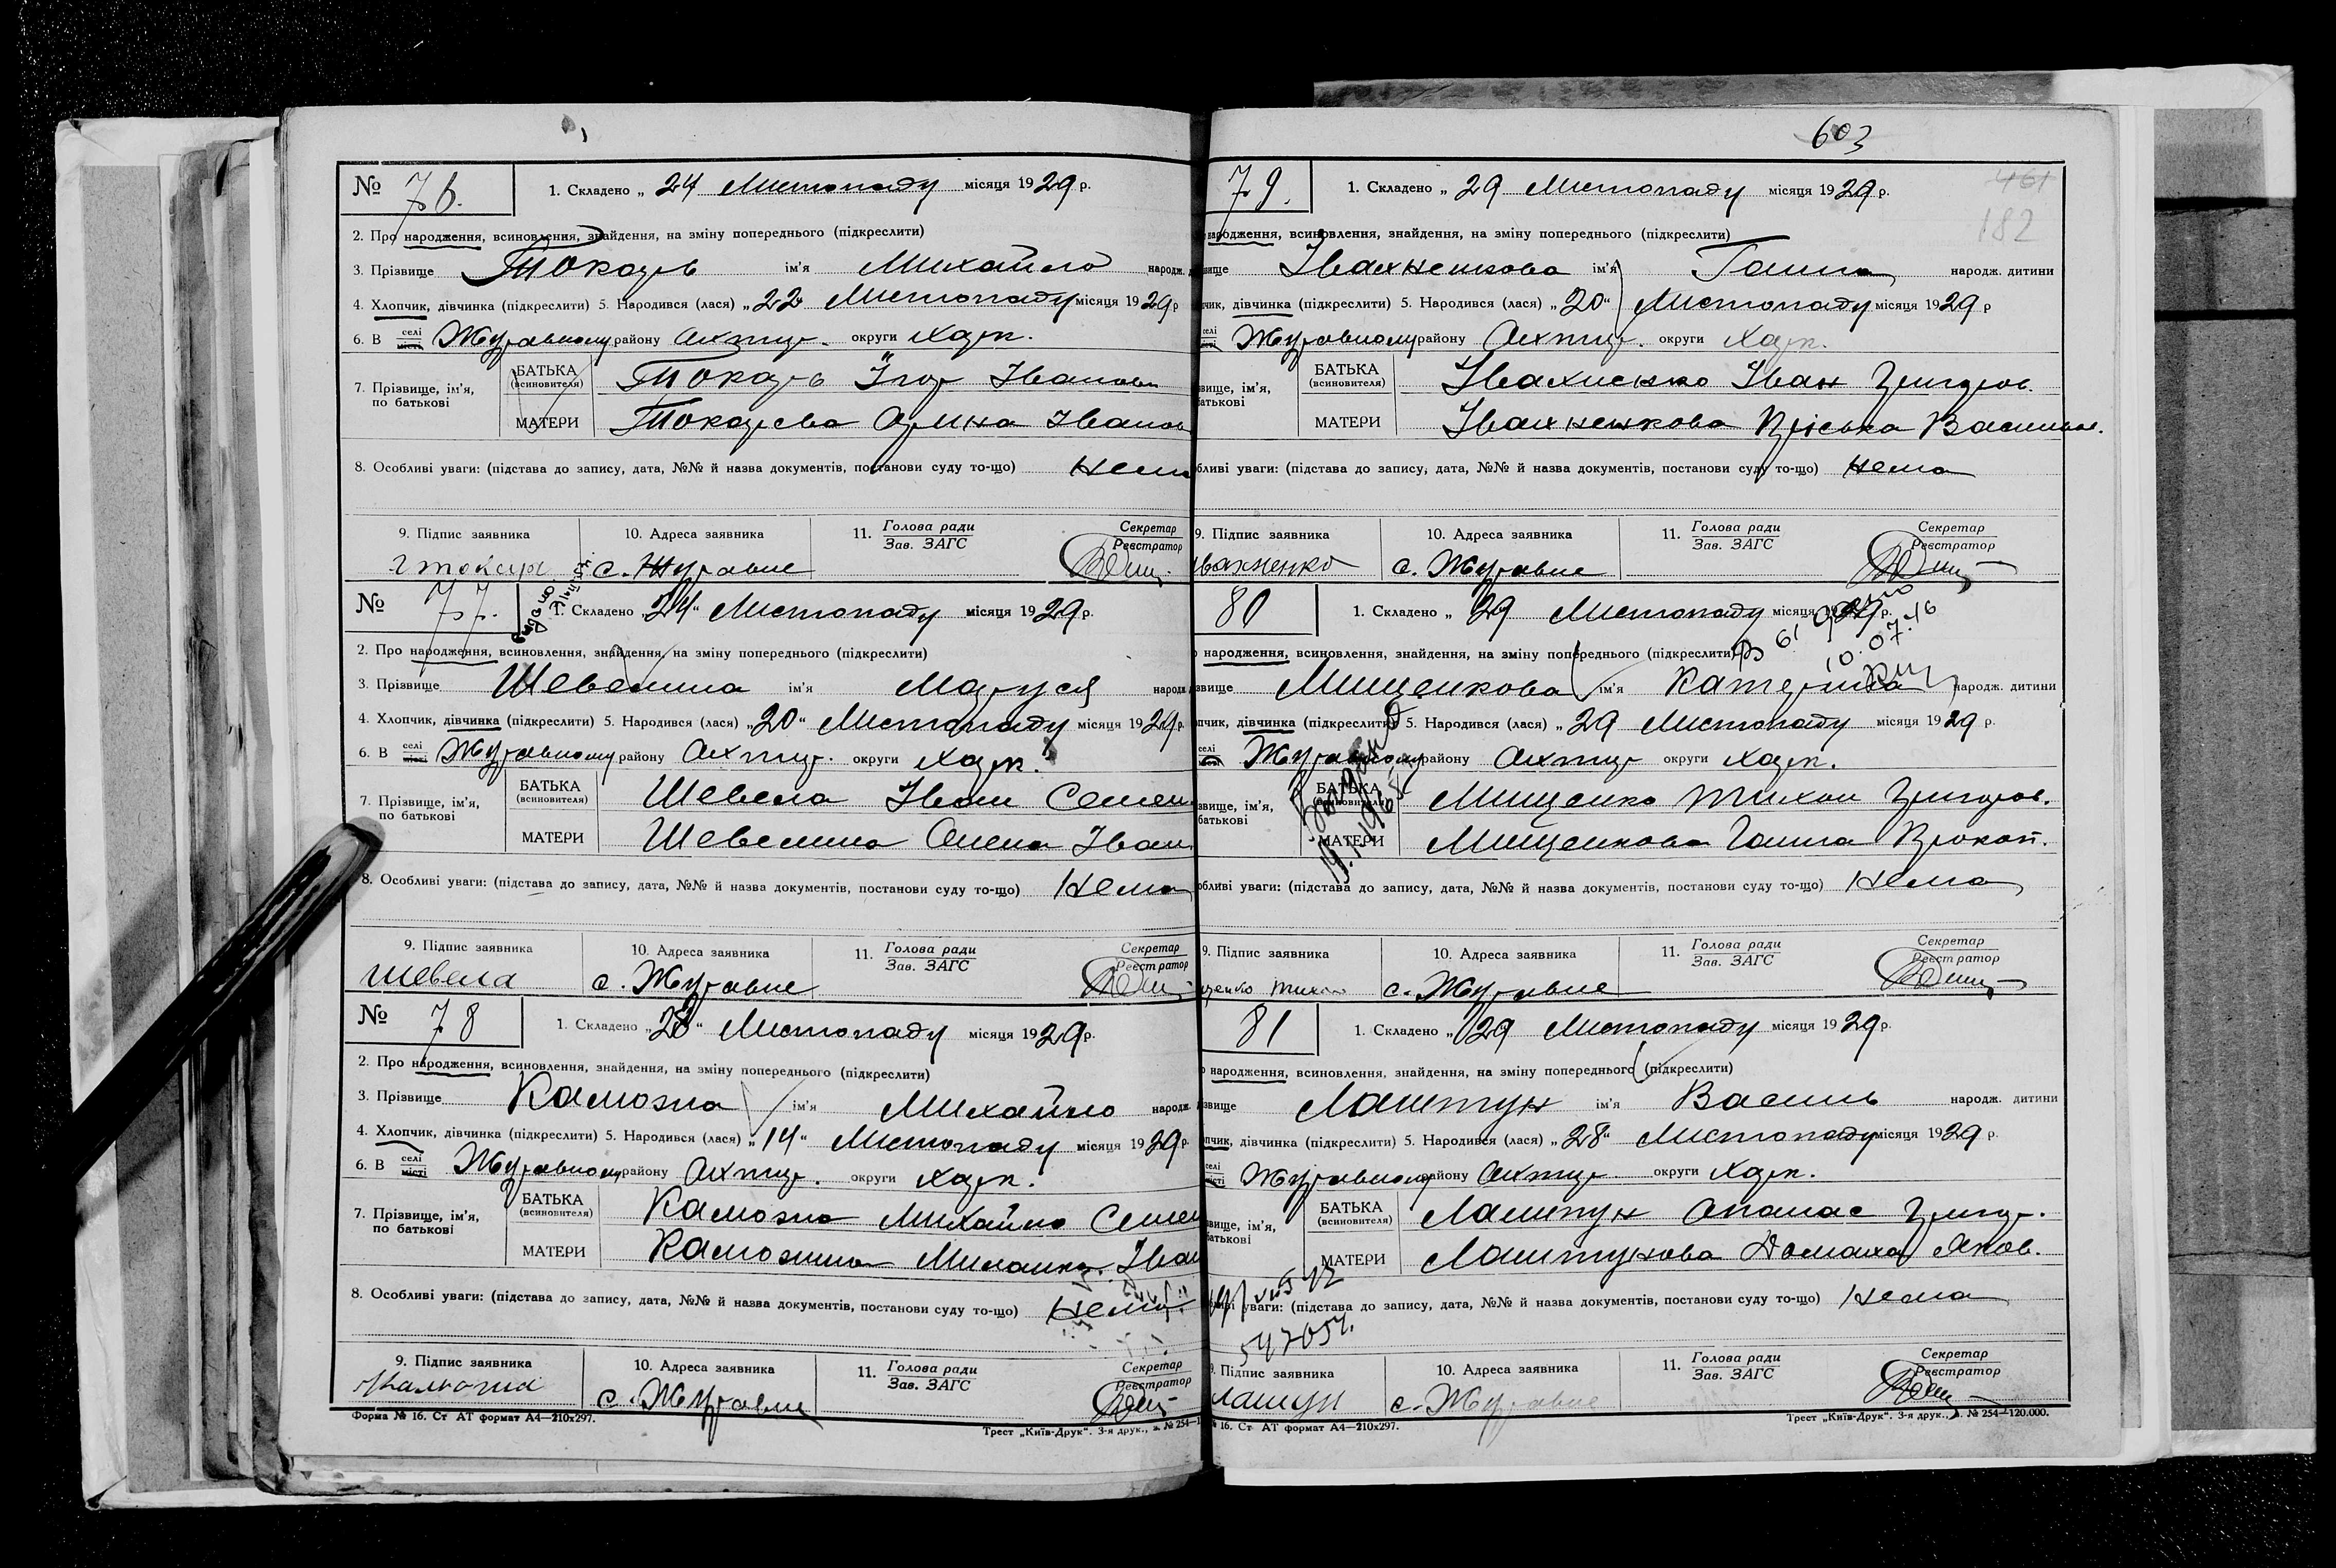 № 76. 1. Складено „ 24 Листопаду місяця 1929 р.
2. Про народження, всиновлення, знайдення, на зміну попереднього (підкреслити)
3. Прізвище Токарь ім'я Михайло народж.
4. Хлопчик, дівчинка (підкреслити) 5. Народився (лася) „22 Листопаду місяця 1929 р
6. В селі місті Журавному району Охтир. округи Харк.
7. Прізвище, ім'я, по батькові БАТЬКА (всиновителя) Токарь Ігор Іванов
МАТЕРИ Токарева Орина Іванов
8. Особливі уваги: (підстава до запису, дата, №№ й назва документів, постанови суду то-що) Нема
9. Підпис заявника 10. Адреса заявника 11. Голова ради Зав. ЗАГС Секретар Реєстратор
с. Журавне
№ 77. 1. Складено „24“ Листопаду місяця 1929 р.
2. Про народження, всиновлення, знайдення, на зміну попереднього (підкреслити)
3. Прізвище Шевелина ім'я Маруся народж.
4. Хлопчик, дівчинка (підкреслити) 5. Народився (лася) „20“ Листопаду місяця 1929 р.
6. В селі місті Журавному району Охтир. округи Харк.
7. Прізвище, ім'я, по батькові БАТЬКА (всиновителя) Шевела Іван Семен
МАТЕРИ Шевелина Олена Іван
8. Особливі уваги: (підстава до запису, дата, №№ й назва документів, постанови суду то-що) Нема
9. Підпис заявника 10. Адреса заявника 11. Голова ради Зав. ЗАГС Секретар Реєстратор
Шевела с. Журавне
№ 78 1. Складено „28“ Листопаду місяця 1929 р.
2. Про народження, всиновлення, знайдення, на зміну попереднього (підкреслити)
3. Прізвище Камозна ім'я Михайло народж.
4. Хлопчик, дівчинка (підкреслити) 5. Народився (лася) „14“ Листопаду місяця 1929 р.
6. В селі місті Журавному району Охтир. округи Харк.
7. Прізвище, ім'я, по батькові БАТЬКА (всиновителя) Камозна Михайло Семен
МАТЕРИ Камозина Миланка Іван
8. Особливі уваги: (підстава до запису, дата, №№ й назва документів, постанови суду то-що) Нема
9. Підпис заявника 10. Адреса заявника 11. Голова ради Зав. ЗАГС Секретар Реєстратор
с. Журавне
Форма № 16. Ст АТ формат А4—210х297. Трест „Київ-Друк“. 3-я друк., з. № 254—1
603
461
182
79. 1. Складено „ 29 Листопаду місяця 1929 р.
народження, всиновлення, знайдення, на зміну попереднього (підкреслити)
вище Івахненкова ім'я Ганна народж. дитини
чик, дівчинка (підкреслити) 5. Народився (лася) „20“ Листопаду місяця 1929 р
селі місті Журавному району Охтир. округи Харк.
вище, ім'я, батькові БАТЬКА (всиновителя) Івахненко Іван Григоров.
МАТЕРИ Івахненкова Пріська Васильев.
бливі уваги: (підстава до запису, дата, №№ й назва документів, постанови суду то-що) Нема
9. Підпис заявника 10. Адреса заявника 11. Голова ради Зав. ЗАГС Секретар Реєстратор
Івахненко с. Журавне
80 1. Складено „ 29 Листопаду місяця 1929 р.
10.07.46
народження, всиновлення, знайдення, на зміну попереднього (підкреслити)
вище Мищенкова ім'я Катерина народж. дитини
пчик, дівчинка (підкреслити) 5. Народився (лася) „29 Листопаду місяця 1929 р.
селі місті Журавному району Охтир округи Харк.
вище, ім'я, батькові БАТЬКА (всиновителя) Мищенко Тихон Григоров.
МАТЕРИ Мищенкова Ганна Прокоп.
бливі уваги: (підстава до запису, дата, №№ й назва документів, постанови суду то-що) Нема
9. Підпис заявника 10. Адреса заявника 11. Голова ради Зав. ЗАГС Секретар Реєстратор
щенко Тихон с. Журавне
81 1. Складено „ 29 Листопаду місяця 1929 р.
народження, всиновлення, знайдення, на зміну попереднього (підкреслити)
вище Лаштун ім'я Василь народж. дитини
пчик, дівчинка (підкреслити) 5. Народився (лася) „28“ Листопаду місяця 1929 р.
селі місті Журавному району Охтир. округи Харк.
вище, ім'я, батькові БАТЬКА (всиновителя) Лаштун Опанас Григор.
МАТЕРИ Лаштунова Домаха Яков.
уваги: (підстава до запису, дата, №№ й назва документів, постанови суду то-що) Нема
9. Підпис заявника 10. Адреса заявника 11. Голова ради Зав. ЗАГС Секретар Реєстратор
с. Журавне
№ 16. Ст АТ формат А4—210х297. Трест „Київ-Друк“. 3-я друк., з. № 254—120.000.